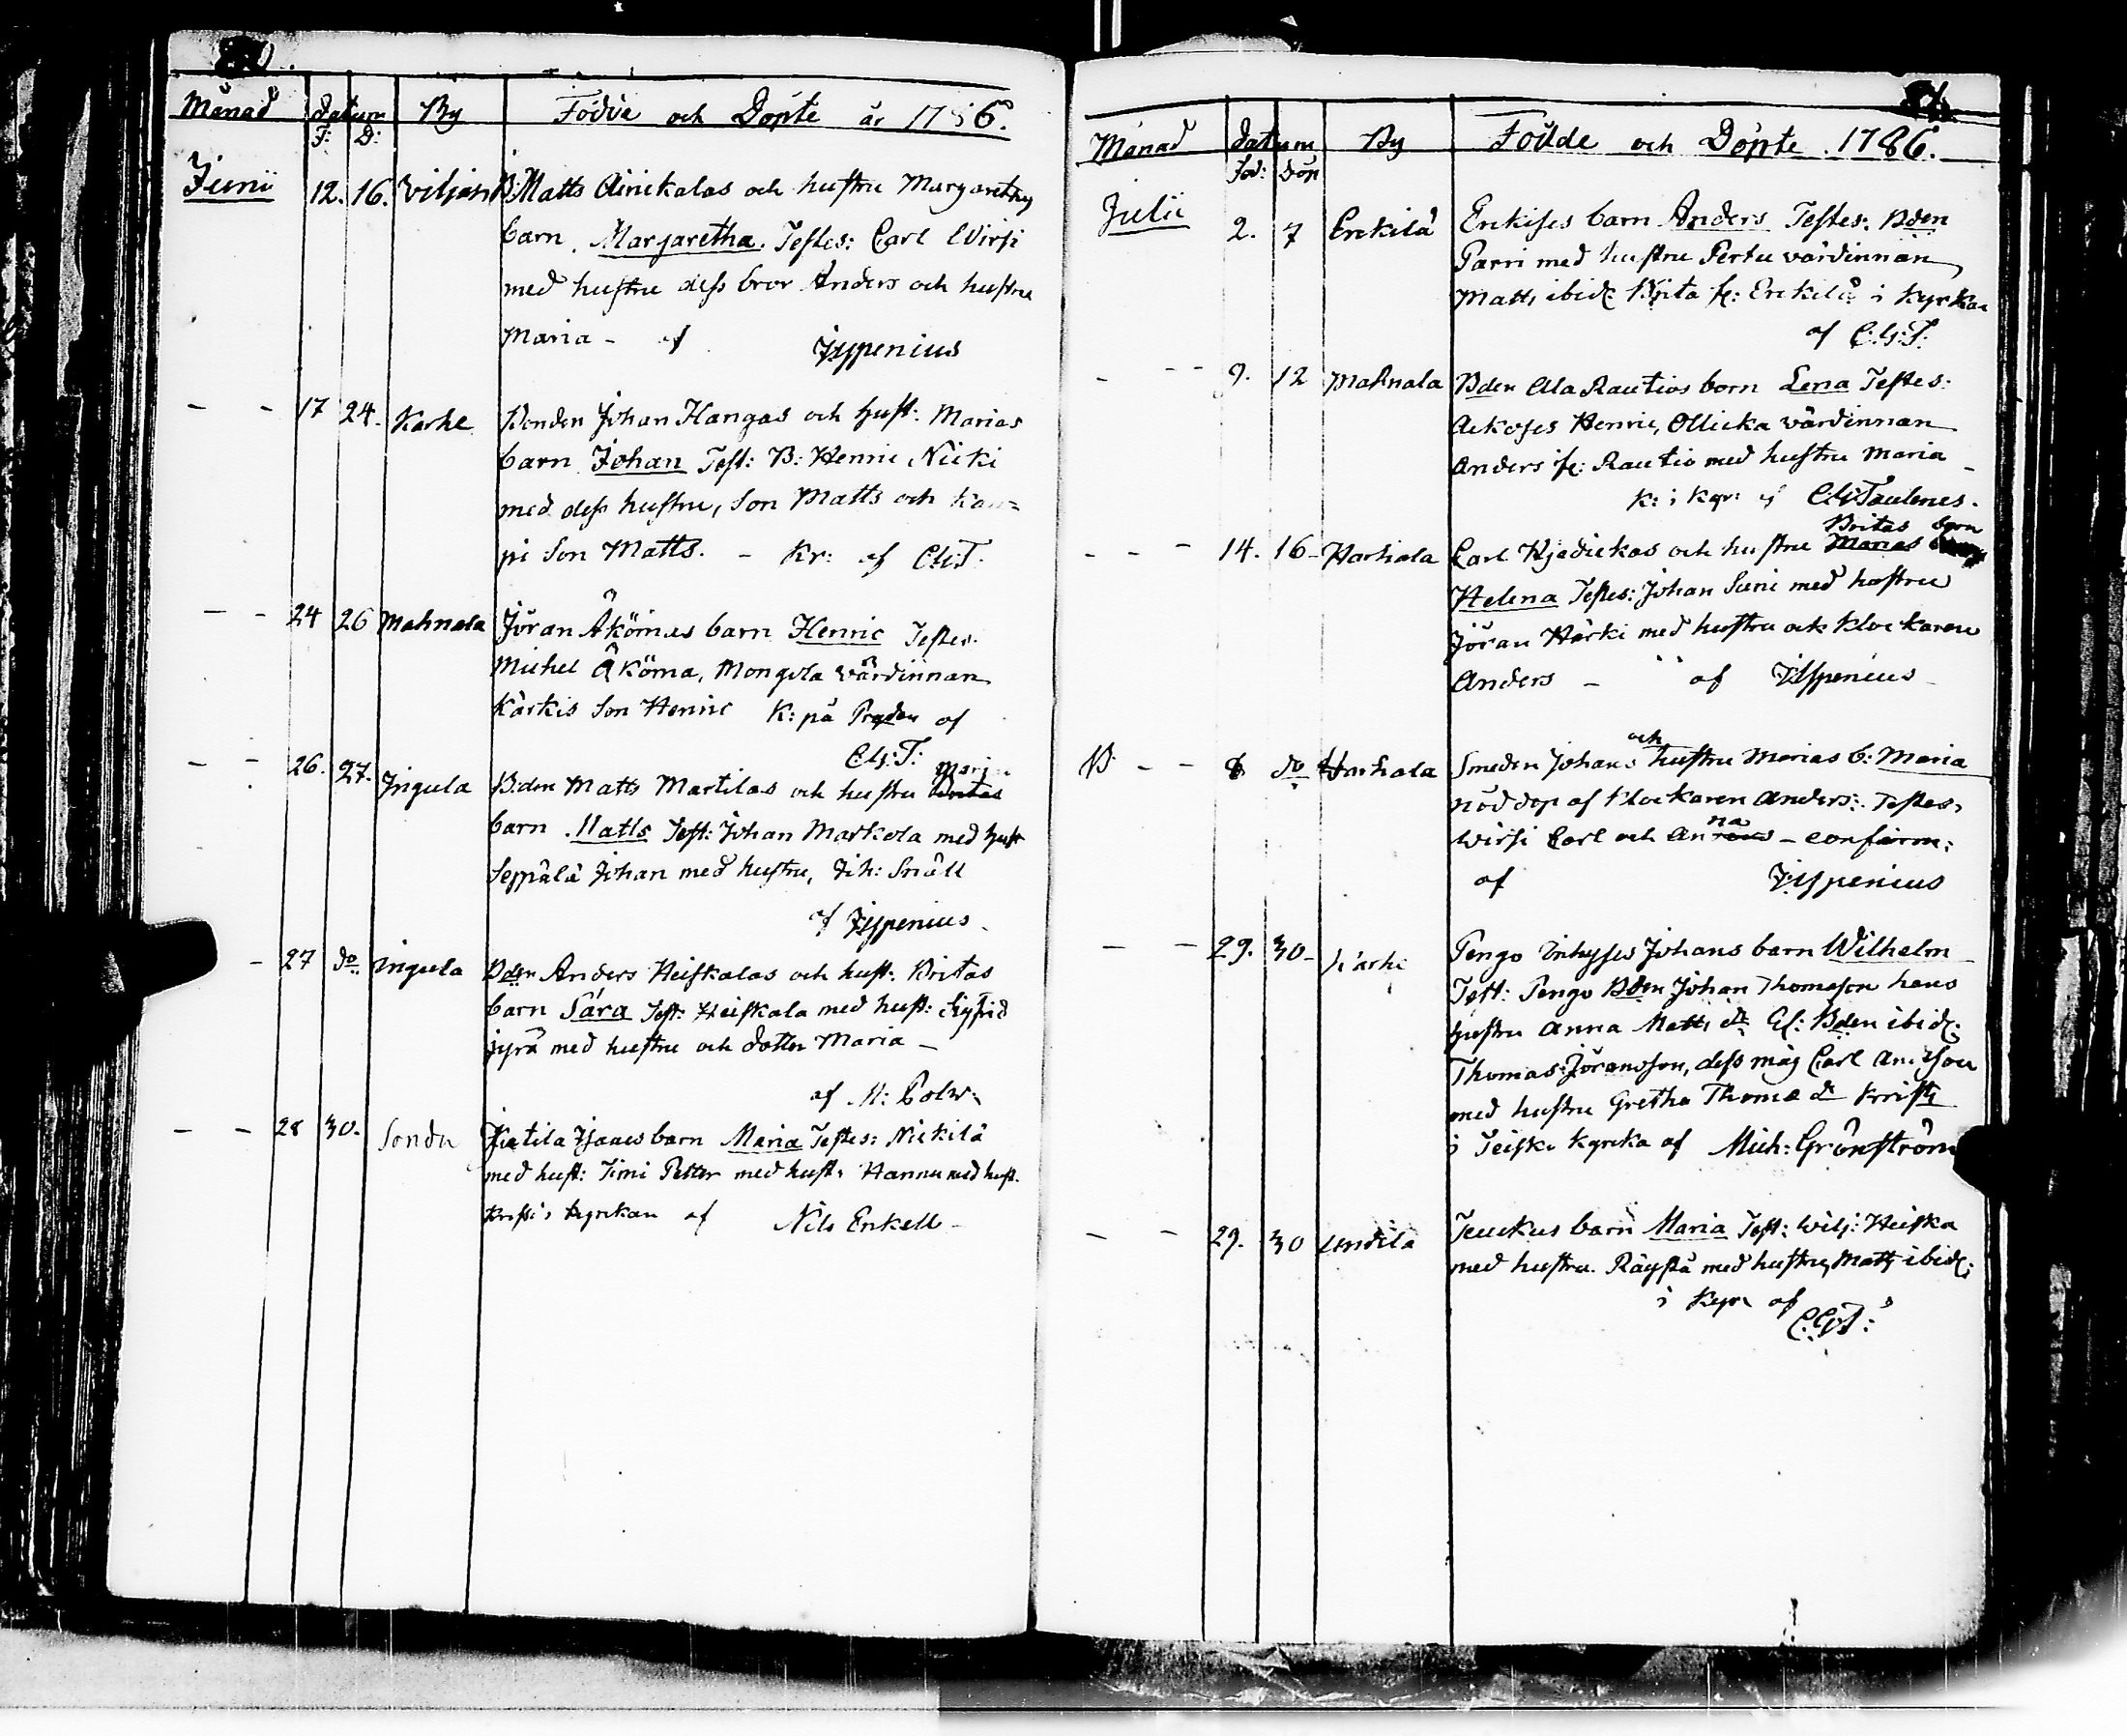 Månad Datum By Födde och Döpte år 1786.
F: D:
Junii 12. 16. Viljan B: Matts Airickalas och hustru Margarethas
barn. Margaretha. Testes: Carl Wirsi
med hustru dess bror Anders och hustru
Maria - af Jispenius
- - 17 24. Karhe Bonden Johan Hangas och hust: Marias
barn Johan Test: B: Henric Nicki
med dess hustru, Son Matts och Kau=
pi Son Matts. - Kr: af C:G:T.
- - 24 26 Mahnala Jöran Åkömas barn Henric Testes.
Michel Åköma, Mongola värdinnan
Kärkis Son Henric K: på af
C:G:T:
- - 26. 27. Jngula B:den Matts Martilas och hustru Britas Marj
barn Matts Test: Johan Markola med hust
Seppälä Johan med hustru, Joh: Snäll
af Jispenius.
- 27 do Jngula Bden Anders Heiskalas och hust: Britas
barn Sara Test: Heiskala med hust: Sigfrid
Jyrä med hustru och dotter Maria -
af M: Polv:
- - 28 30. Sondu Kietila Isaacs barn Maria Testes: Nickilä
med hust: Timi Petter med hust: Hannu med hust.
Krist i kyrckan af Nils Enkell -
Månad Datum By Födde och Döpte 1786.
Föd: Döp
Julii 2. 7 Erckilä Erckises barn Anders Testes: Bden
Parri med hustru Pertu värdinnan
Matts ibid: Brita fr: Erckilä i kyrckan
af C:G:T:
- - - 9. 12 Mahnala Bden Ala Rautios barn Lena Testes:
Ackoses Henric, Ollicka värdinnan
Anders fr: Rautio med hustru Maria -
K: i Kyr: af C:G:Taulerus.
- - - 14. 16 - Harhala Carl Kjedickas och hustru Marias Britas barn
Helena Testes: Johan Suni med hustru
Jöran Härki med hustru och Klockaren
Anders - af Jispenius
B - - 8 do Harhala Smeden Johans och hustru Marias b: Maria
nöd döp af Klockaren Anders: Testes,
Wirsi Carl och Anna - confirm:
af Jispenius
- - 29. 30 - Pengo Johans barn Wilhelm
Test: Pengo Bden Johan Thomasson hans
hustru Anna Matts dr Gl: Bden ibid:
Thomas Jöransson, dess måg Carl Andsson
med hustru Gretha Thomæ dr Kristt
i Teisko kyrcka af Mich: Grönström
- - 29. 30 Undila Teuckus barn Maria Test: Wilj: Heiska
med hustru. Räystä med hustru, Matts ibid:
i Kyr: af
C:G:T: